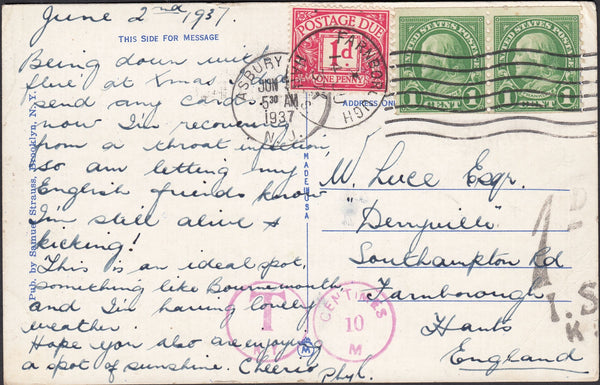 June 2nd 1937.
THIS SIDE FOR MESSAGE
Being down with
'flu' at Xmas
send any card
now I'm recovering
from a throat infection,
so am letting my
English friends know
I'm still alive &
kicking!
This is an ideal spot,
something like Bournemouth
and I'm having lovely
weather.
Hope you also are enjoying
a spot of sunshine. Cheerio
Phyl.
Pub. by Samuel Strauss, Brooklyn, N. Y.
MADE IN USA
POSTAGE DUE
1d
ONE PENNY
ASBURY
JUN
5 30 AM
1937
N. J.
FARNBOROUGH
UNITED STATES POSTAGE
1 CENT 1
UNITED STATES POSTAGE
1 CENT 1
ADDRESS ON
W. Luce Esqr.
"Derryville"
Southampton Rd
Farnborough
Hants
England
T
N.Y.
CENTIMES
10
M
1
D
I.S
K